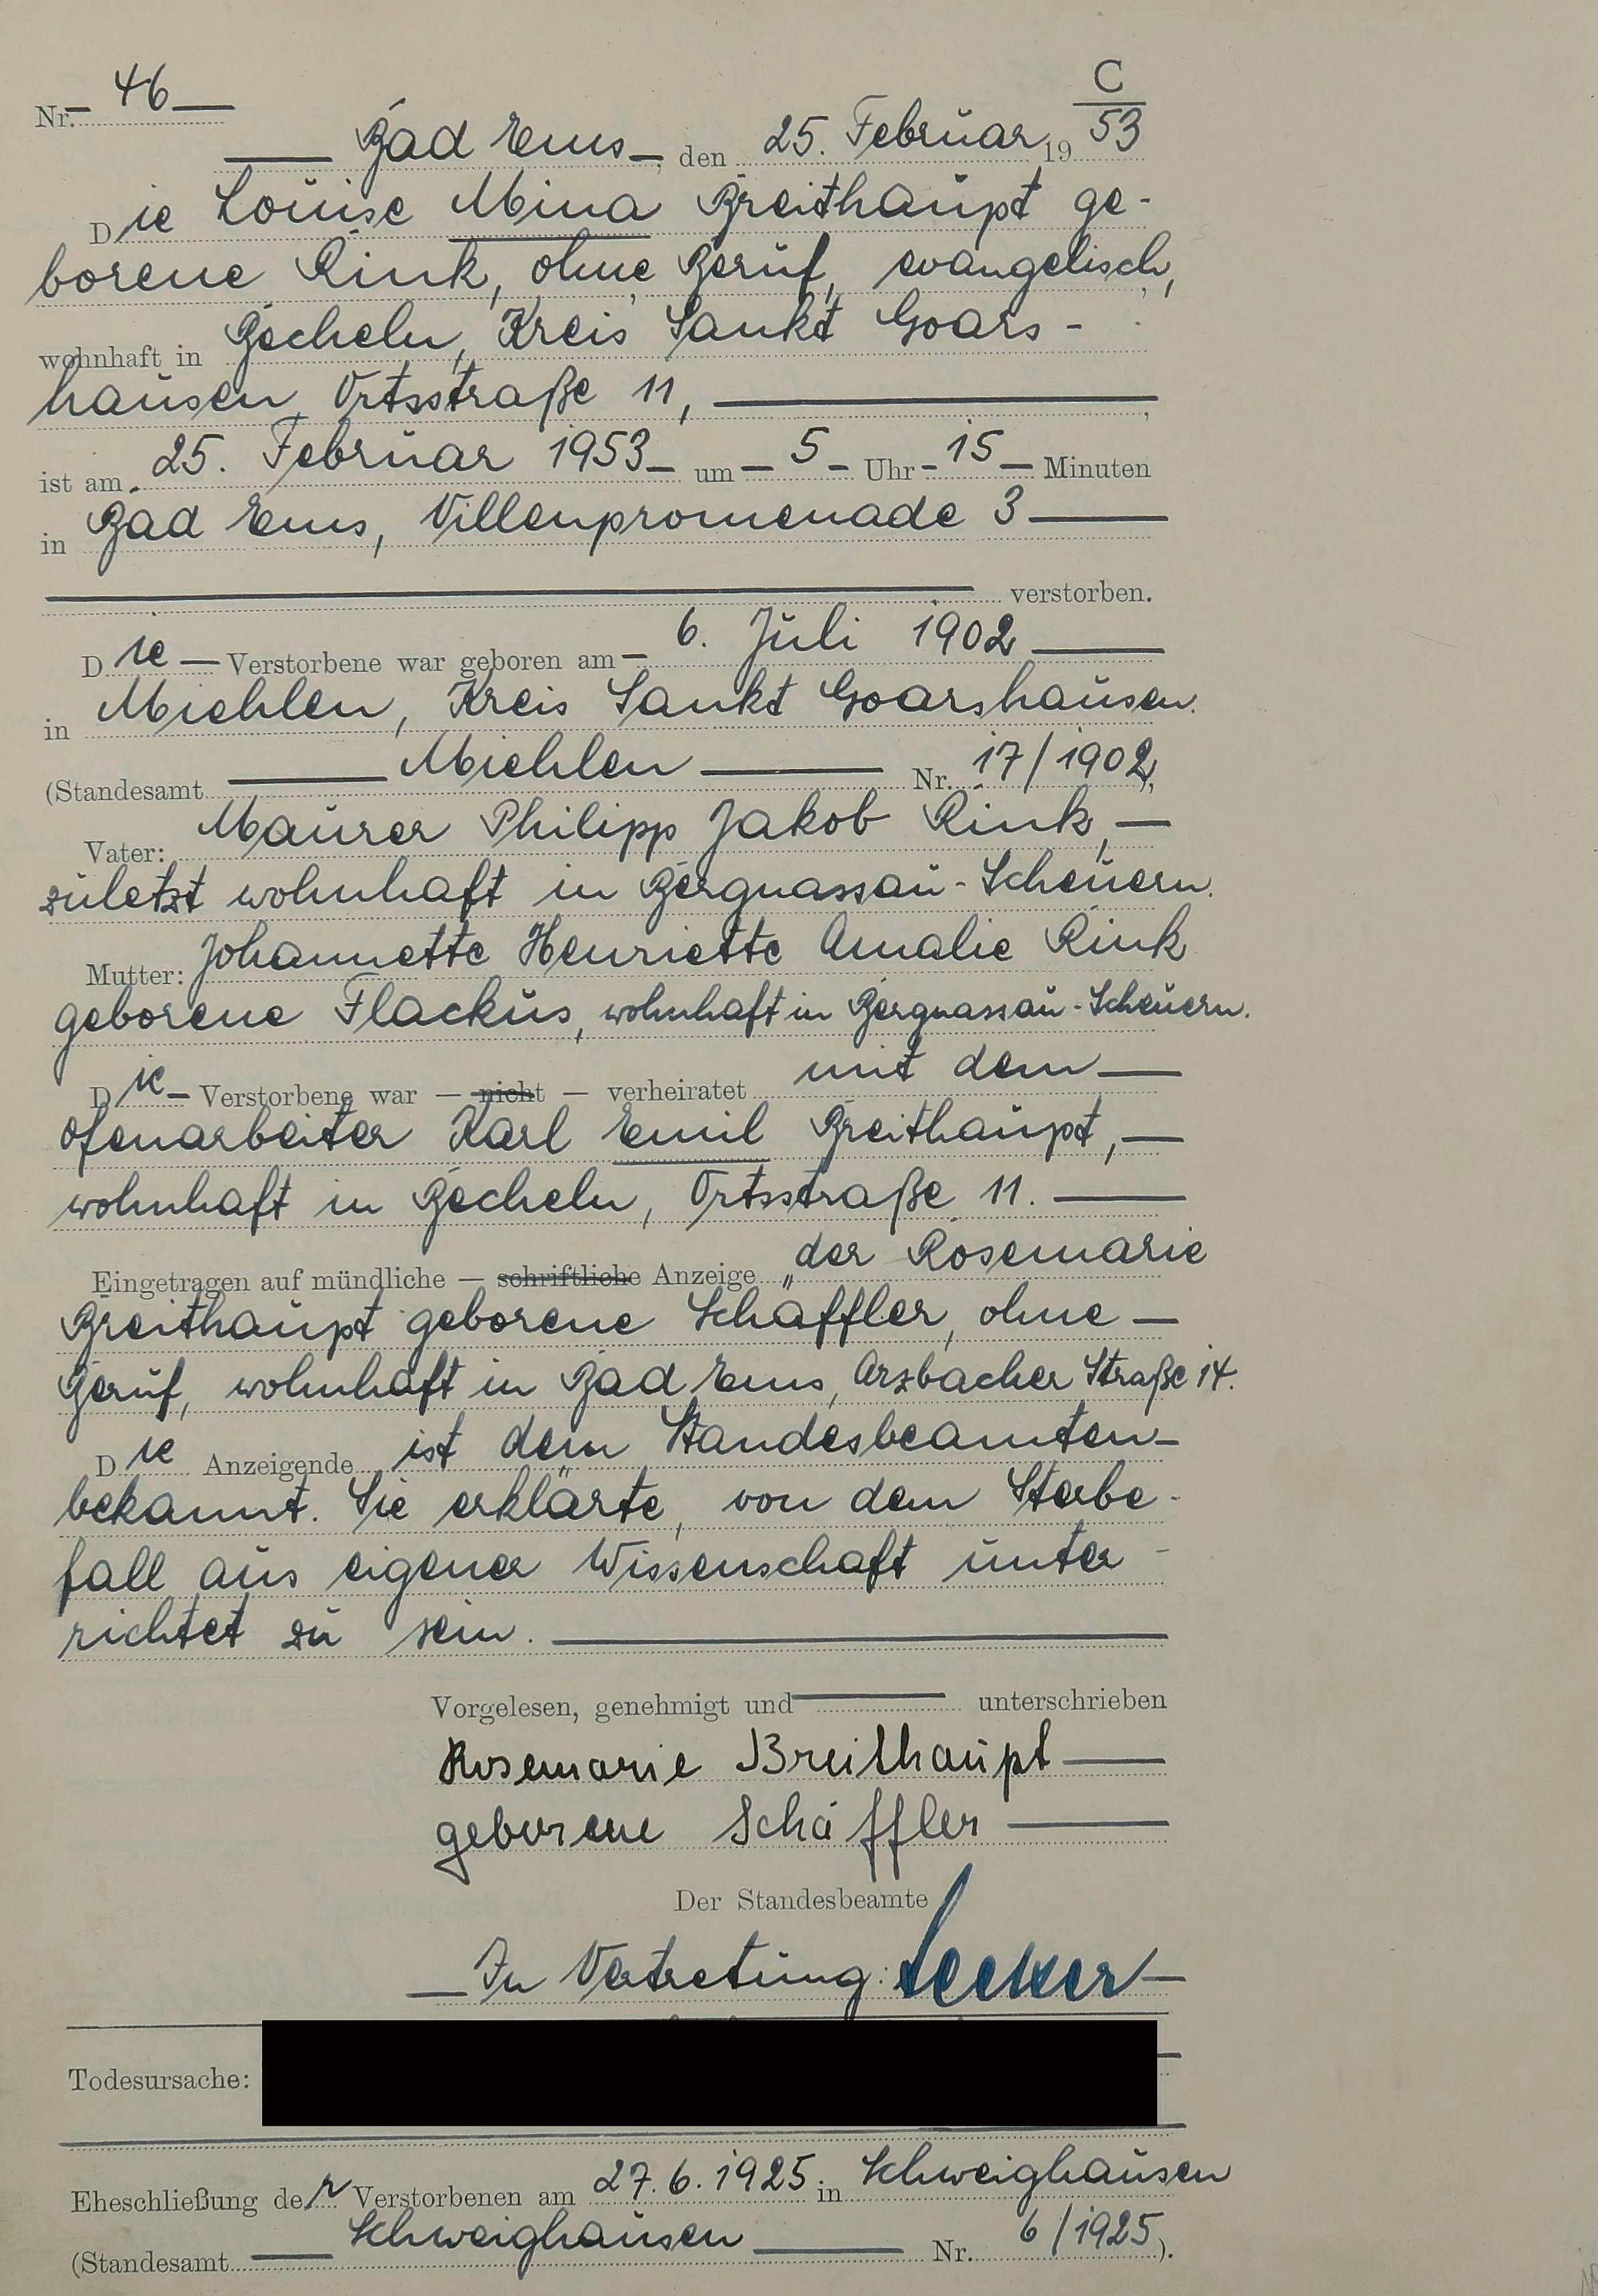 C
Nr. 46
Bad Ems, den 25. Februar 1953
Die Louise Mina Breithaupt ge-
borene Rink, ohne Beruf, evangelisch,
wohnhaft in Becheln, Kreis Sankt Goars-
hausen, Ortsstraße 11,
ist am 25. Februar 1953 um 5 Uhr 15 Minuten
in Bad Ems, Villenpromenade 3
verstorben.
Die Verstorbene war geboren am 6. Juli 1902
in Miehlen, Kreis Sankt Goarshausen.
(Standesamt Miehlen Nr. 17/1902),
Vater: Maurer Philipp Jakob Rink,
zuletzt wohnhaft in Bergnassau-Scheuern.
Mutter: Johannette Henriette Amalie Rink
geborene Flackus, wohnhaft in Bergnassau-Scheuern.
Die Verstorbene war — nicht — verheiratet mit dem
Ofenarbeiter Karl Emil Breithaupt,
wohnhaft in Becheln, Ortsstraße 11.
Eingetragen auf mündliche — schriftliche Anzeige der Rosemarie
Breithaupt geborene Schäffler, ohne
Beruf, wohnhaft in Bad Ems, Arzbacher Straße 14.
Die Anzeigende ist dem Standesbeamten
bekannt. Sie erklärte, von dem Sterbe-
fall aus eigener Wissenschaft unter-
richtet zu sein.
Vorgelesen, genehmigt und unterschrieben
Rosemarie Breithaupt
geborene Schäffler
Der Standesbeamte
In Vertretung:
Todesursache:
Eheschließung der Verstorbenen am 27.6.1925 in Schweighausen
(Standesamt Schweighausen Nr. 6/1925).